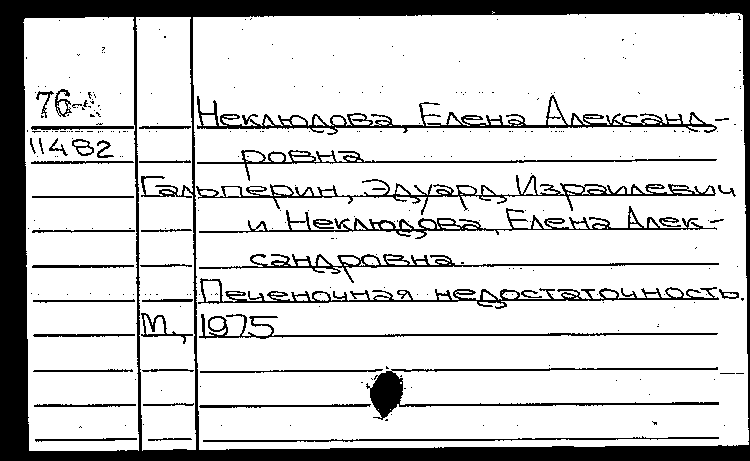 76-4
Неклюдова, Елена Александ-
11482
ровна
Гальперин, Эдуард Израилевич
и Неклюдова, Елена Алек-
сандровна.
Печеночная недостаточность.
М., 1975